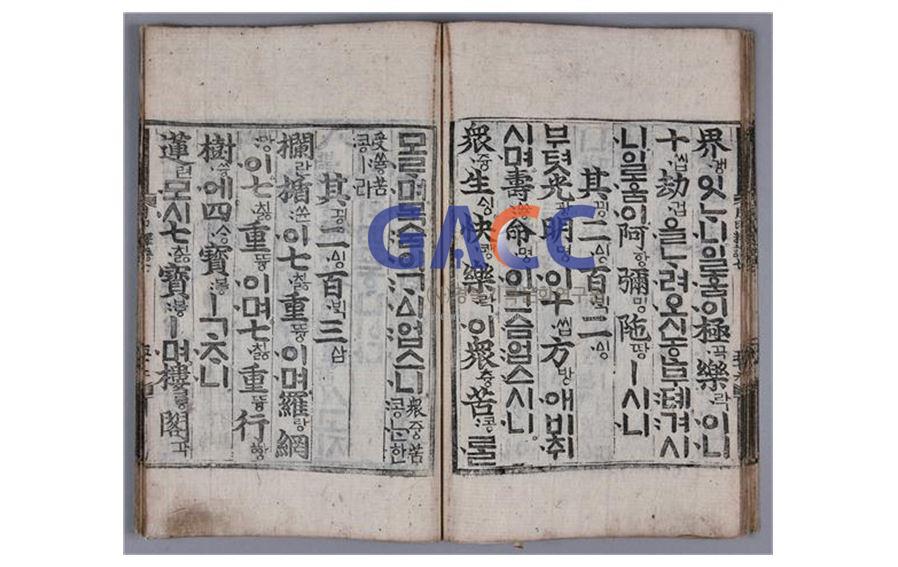 界갱 잇ᄂᆞ니 일훔이 極끅樂락이니
十씹劫겁을 ᄂᆞ려오신 부톄 겨시
니 일훔이 阿항彌밍陁땅ㅣ시니
其끵二ᅀᅵᆼ百ᄇᆡᆨ二ᅀᅵᆼ
부텻 光광明명이 十씹方방애 비취
시며 壽쓩命명이 ᄀᆞᇫ 업스시니
衆즁生ᄉᆡᆼ 快쾡樂락이 衆즁苦콩ᄅᆞᆯ
모ᄅᆞ며 목숨이 ᄀᆞᇫ이 업스니 衆즁苦콩ᄂᆞᆫ 한
受쓩苦콩ㅣ라
其끵二ᅀᅵᆼ百ᄇᆡᆨ三삼
欄란楯쓘이 七칧重뜡이며 羅랑網
망이 七칧重뜡이며 七칧重뜡行ᅘᅢᆼ
樹쓩에 四ᄉᆞᆼ寶보ᇢㅣ ᄀᆞ초니
蓮련모시 七칧寶보ᇢㅣ며 樓륳閣각
GACC